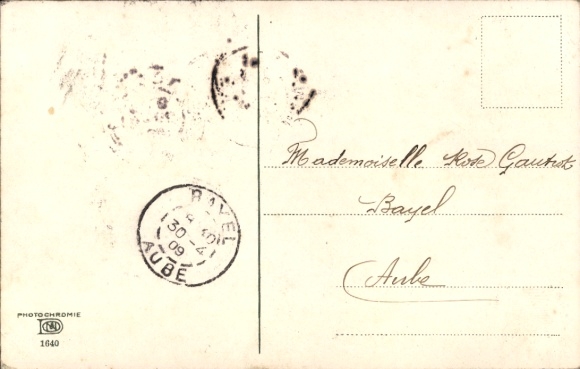 Mademoiselle Rose Gautrot
Bayel
Aube
BAYEL
30 -4
09
AUBE
PHOTOCHROMIE
1640